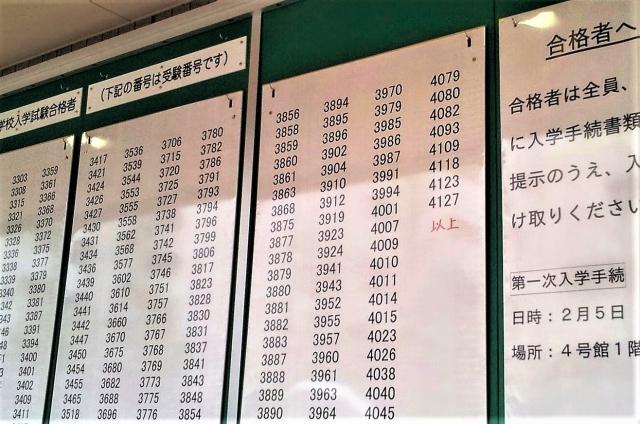 学校入学試験合格者
(下記の番号は受験番号です)
3303 3359
3308 3361
3315 3366
3321 3368
3326 3370
3328 3372
3336 3375
3338 3377
3339 3379
3340 3380
3342 3381
3387
3391
3394
3400
3401
3402
3409
3411
3417 3536 3706 3780
3421 3539 3715 3782
3424 3544 3720 3786
3426 3553 3725 3791
3427 3555 3727 3793
3430 3558 3738 3794
3431 3562 3741 3796
3434 3568 3742 3799
3436 3577 3745 3806
3439 3602 3746 3817
3440 3610 3751 3823
3441 3614 3757 3828
3442 3660 3766 3830
3447 3670 3767 3831
3450 3675 3768 3837
3454 3680 3769 3841
3455 3682 3773 3843
3465 3688 3775 3848
3518 3696 3776 3854
3856 3894 3970 4079
3858 3895 3979 4080
3859 3896 3985 4082
3860 3902 3986 4093
3861 3904 3987 4109
3863 3910 3991 4118
3868 3912 3994 4123
3875 3919 4001 4127
3877 3923 4007 以上
3878 3924 4009
3879 3941 4010
3880 3943 4011
3881 3952 4014
3882 3955 4015
3883 3957 4023
3887 3960 4026
3888 3961 4038
3889 3963 4040
3890 3964 4045
合格者へ
合格者は全員、
に入学手続書類
提示のうえ、入
け取りください
第一次入学手続
日時：２月５日
場所：４号館１階